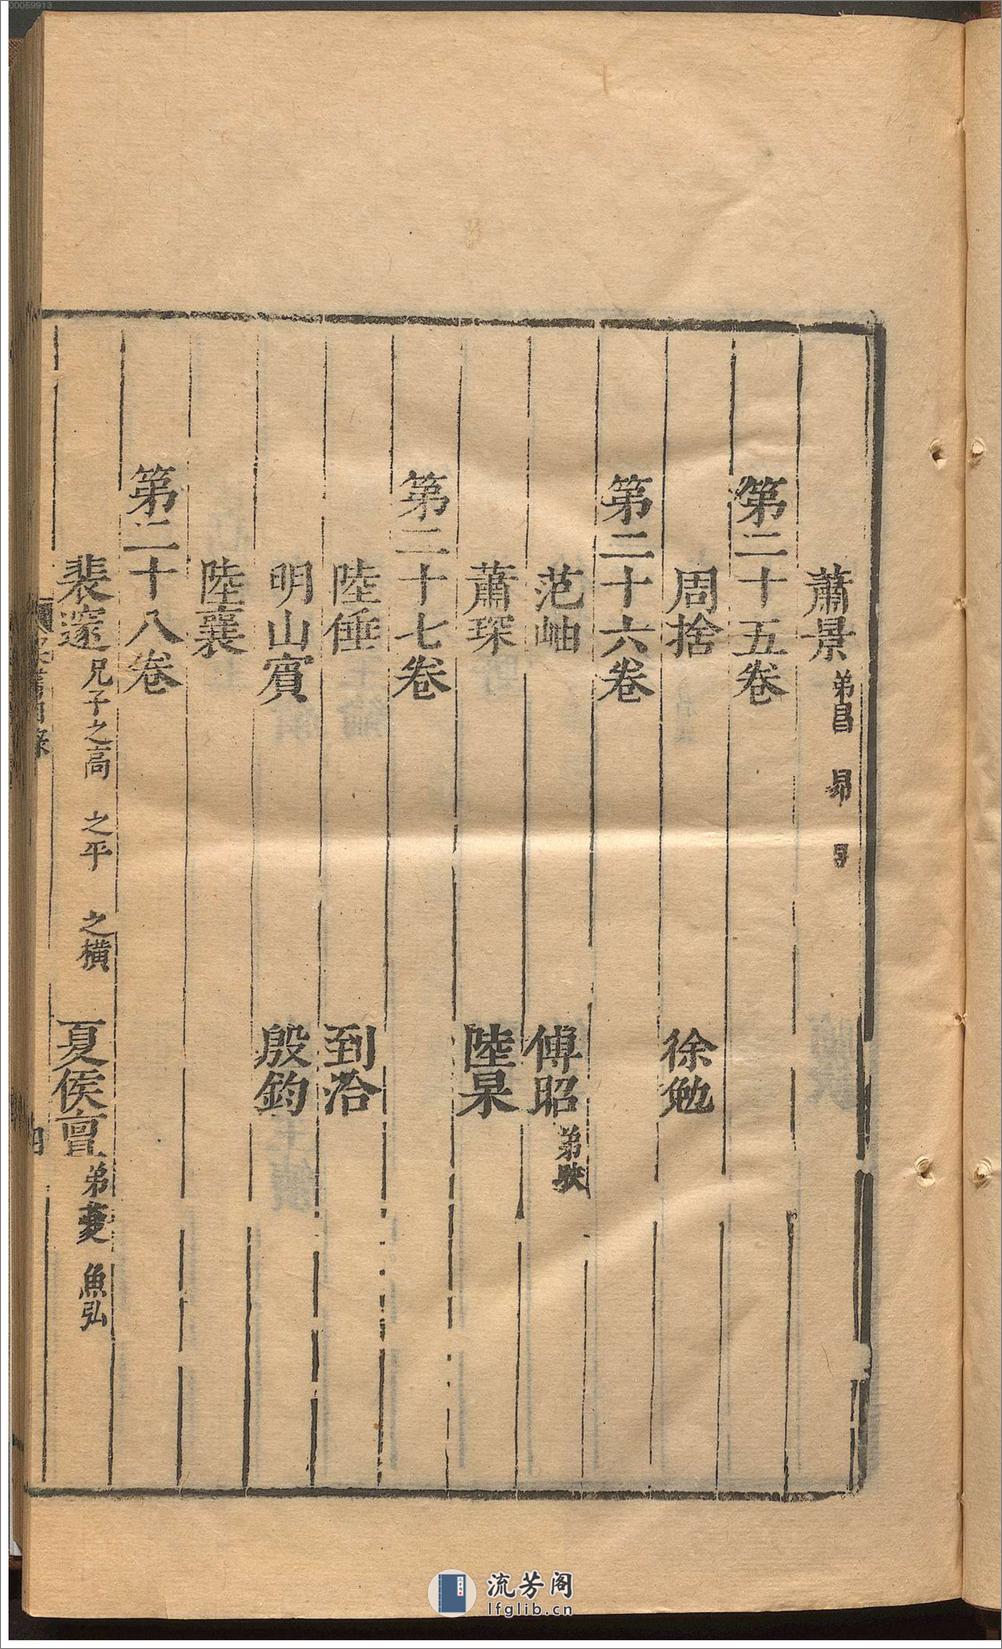 00059913
蕭景 弟昌 昂 昱
第二十五卷
周捨 徐勉
第二十六卷
范岫 傅昭 弟映
蕭琛 陸杲
第二十七卷
陸倕 到洽
明山賓 殷鈞
陸襄
第二十八卷
裴邃 兄子之高 之平 之橫 夏侯亶 弟夔 魚弘
流芳阁
lfglib.cn